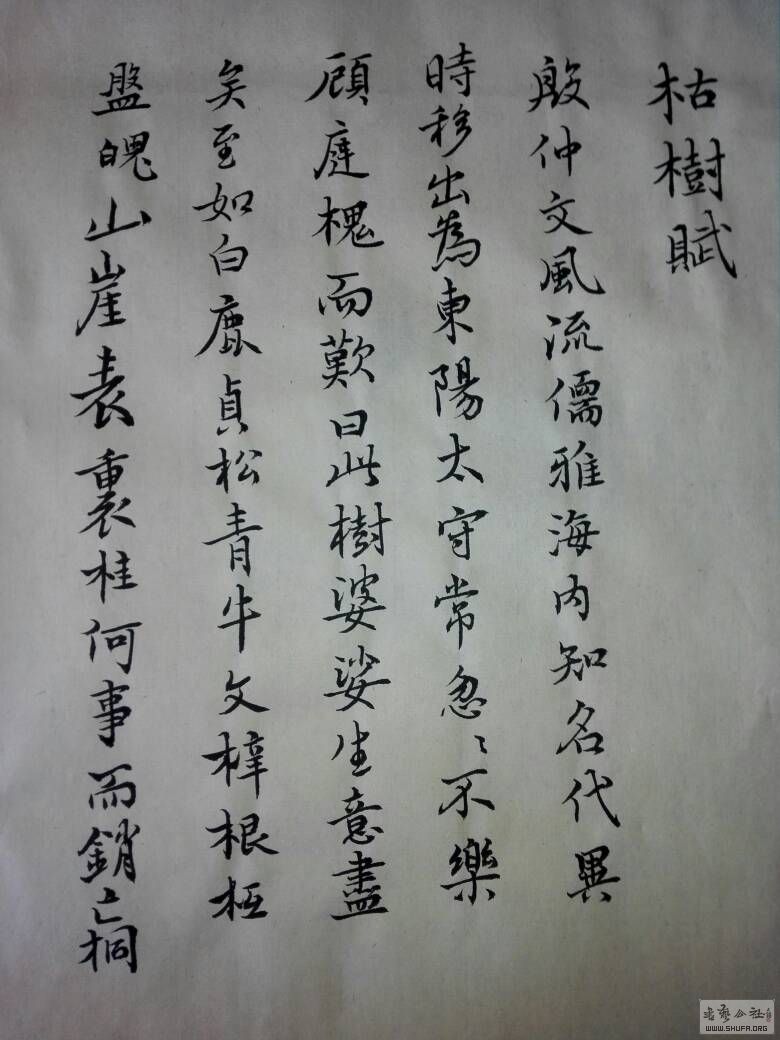 枯樹賦
殷仲文風流儒雅海内知名代異
時移出為東陽太守常忽〻不樂
顧庭槐而歎曰此樹婆娑生意盡
矣至如白鹿貞松青牛文梓根柢
盤魄山崖表裏桂何事而銷亡桐
WWW.SHUFA.ORG